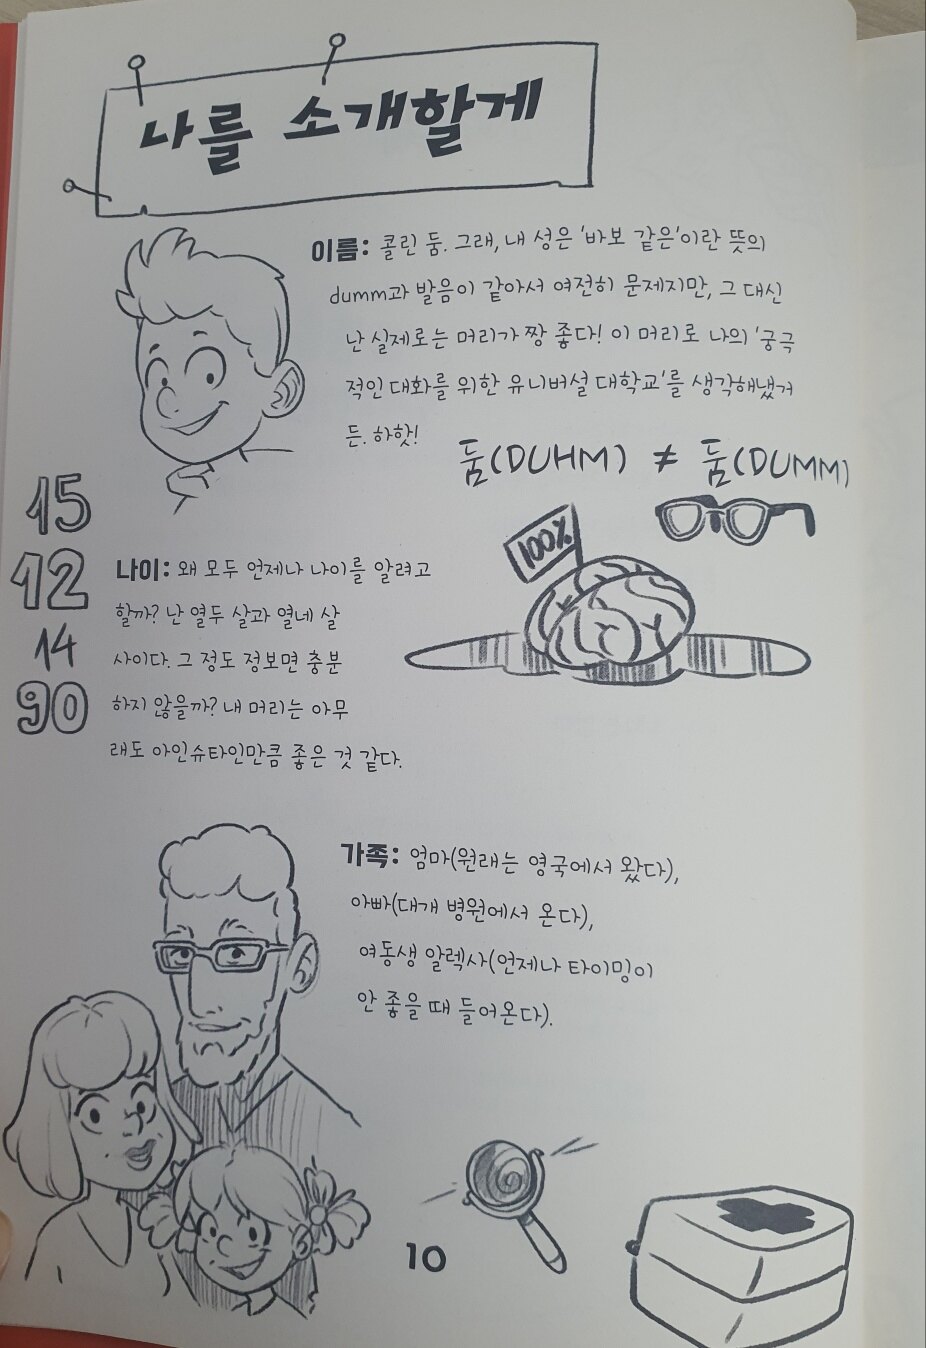 나를 소개할게
이름: 콜린 둠. 그래, 내 성은 '바보 같은'이란 뜻의
dumm과 발음이 같아서 여전히 문제지만, 그 대신
난 실제로는 머리가 짱 좋다! 이 머리로 나의 '궁극
적인 대화를 위한 유니버설 대학교'를 생각해냈거
든. 하핫!
둠(DUHM) ≠ 둠(DUMM)
100%
15
12
14
90
나이: 왜 모두 언제나 나이를 알려고
할까? 난 열두 살과 열네 살
사이다. 그 정도 정보면 충분
하지 않을까? 내 머리는 아무
래도 아인슈타인만큼 좋은 것 같다.
가족: 엄마(원래는 영국에서 왔다),
아빠(대개 병원에서 온다),
여동생 알렉사(언제나 타이밍이
안 좋을 때 들어온다).
10